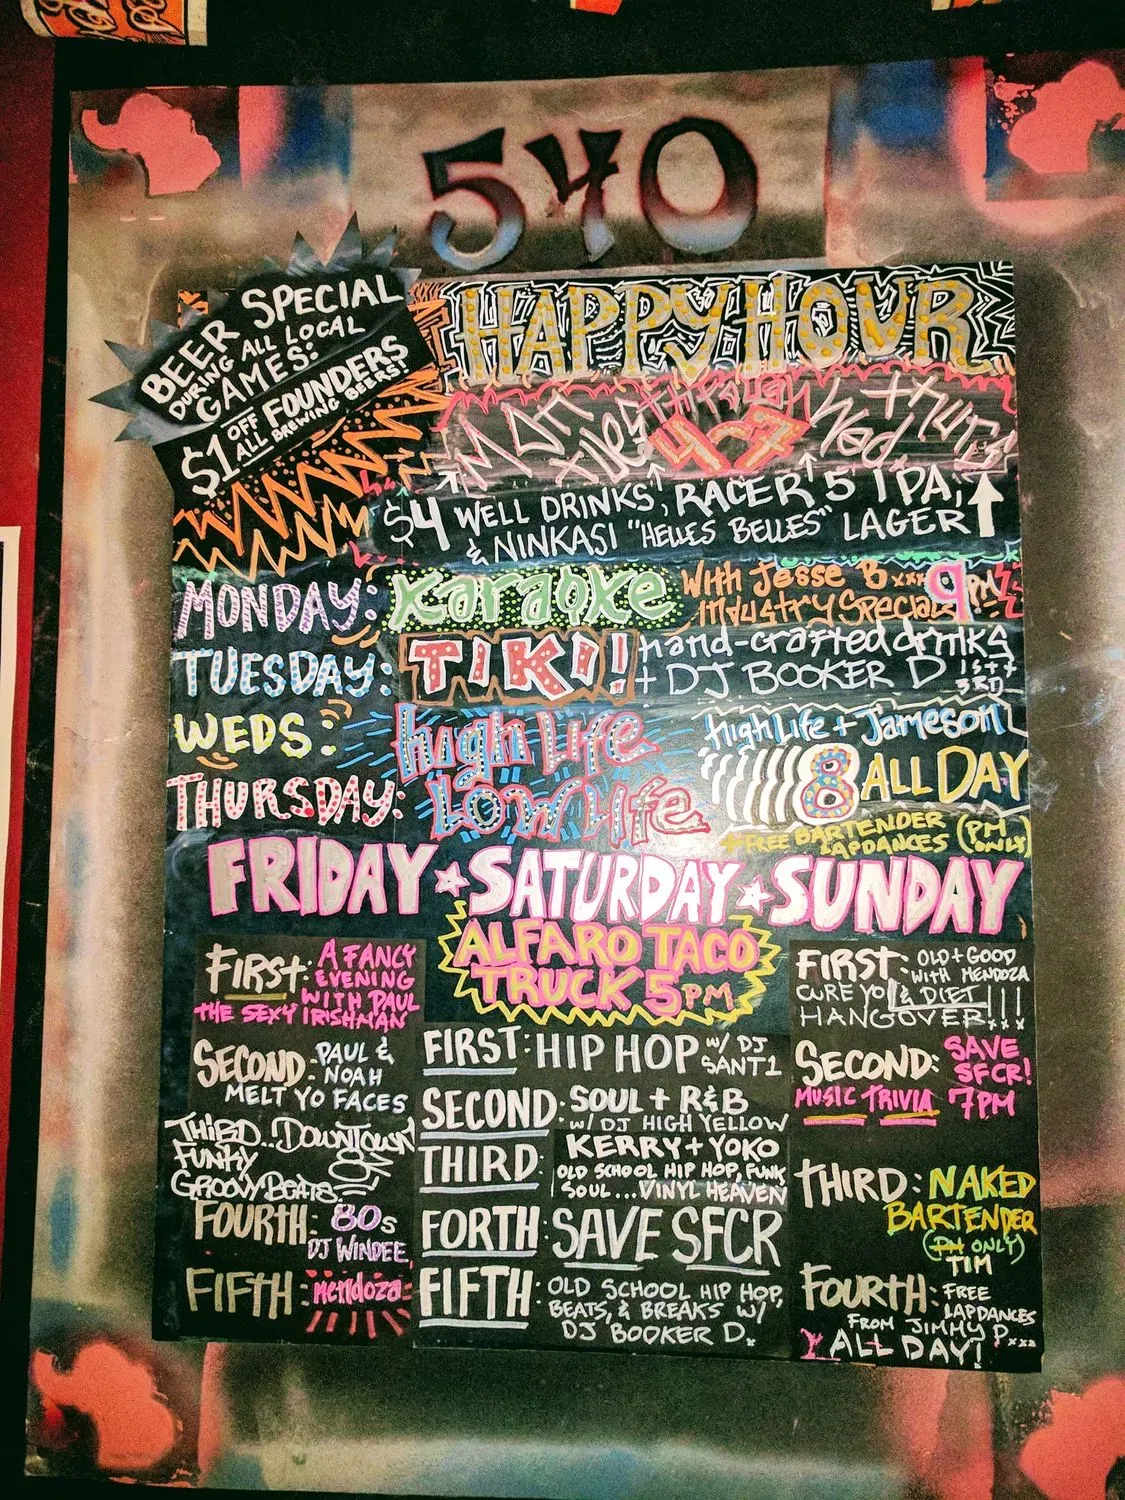 540
BEER SPECIAL
DURING ALL LOCAL
GAMES:
$1 OFF FOUNDERS
ALL BREWING BEERS!
HAPPY HOUR
through
4-7
$4 WELL DRINKS, RACER 5 IPA,
& NINKASI "HELLES BELLES" LAGER
MONDAY: Karaoke With Jesse B xxx 9PM
Industry Special
TUESDAY: TIKI! hand-crafted drinks
+ DJ BOOKER D 1ST + 3RD
WEDS: high Life high Life + Jameson
8 ALL DAY
THURSDAY: LOW Life
FREE BARTENDER (PM
LAPDANCES ONLY)
FRIDAY ★ SATURDAY ★ SUNDAY
ALFARO TACO
TRUCK 5PM
FIRST: A FANCY
EVENING
WITH PAUL
THE SEXY IRISHMAN
SECOND: PAUL &
NOAH
MELT YO FACES
THIRD... DOWNTOWN
FUNKY
GROOVY BEATS
FOURTH: 80s
DJ WINDEE
FIFTH: Mendoza
FIRST: HIP HOP W/ DJ
SANT1
SECOND: SOUL + R&B
W/ DJ HIGH YELLOW
THIRD: KERRY + YOKO
OLD SCHOOL HIP HOP, FUNK,
SOUL... VINYL HEAVEN
FORTH: SAVE SFCR
FIFTH: OLD SCHOOL HIP HOP,
BEATS, & BREAKS W/
DJ BOOKER D.
FIRST: OLD + GOOD
WITH MENDOZA
CURE YO & DIET
HANGOVER!!!
SECOND: SAVE
SFCR!
MUSIC TRIVIA 7PM
THIRD: NAKED
BARTENDER
(PM ONLY)
TIM
FOURTH: FREE
LAPDANCES
FROM JIMMY P.xxx
ALL DAY!